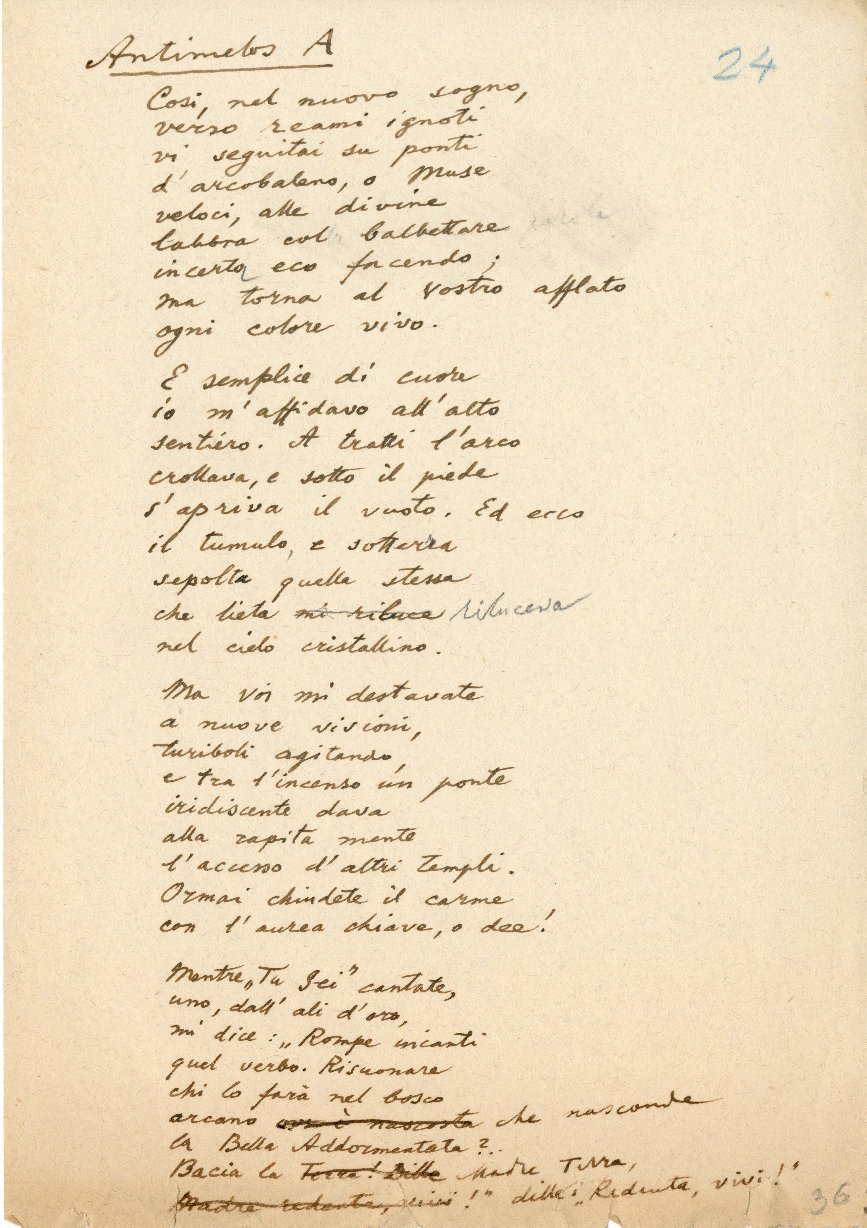 Antimelos A
24
Così, nel nuovo sogno,
verso reami ignoti
vi seguitai su ponti
d'arcobaleno, o Muse
veloci, alle divine
labbra col balbettare
incerto eco facendo;
ma torna al Vostro afflato
ogni colore vivo.
E semplice di cuore
io m'affidavo all'alto
sentiero. A tratti l'arco
crollava, e sotto il piede
s'apriva il vuoto. Ed ecco
il tumulo, e sotterra
sepolta quella stessa
che lieta mi riluce riluceva
nel cielo cristallino.
Ma voi mi destavate
a nuove visioni,
turiboli agitando,
e tra l'incenso un ponte
iridiscente dava
alla rapita mente
l'accesso d'altri templi.
Ormai chiudete il carme
con l'aurea chiave, o dee!
Mentre „Tu Sei" cantate,
uno, dall' ali d'oro,
mi dice: „Rompe incanti
quel verbo. Risuonare
chi lo farà nel bosco
arcano ov' è nascosta che nasconde
la Bella Addormentata?..
Bacia la Terra! Dille Madre Terra,
Madre redenta, vivi!" dille: „Redenta, vivi!"
36